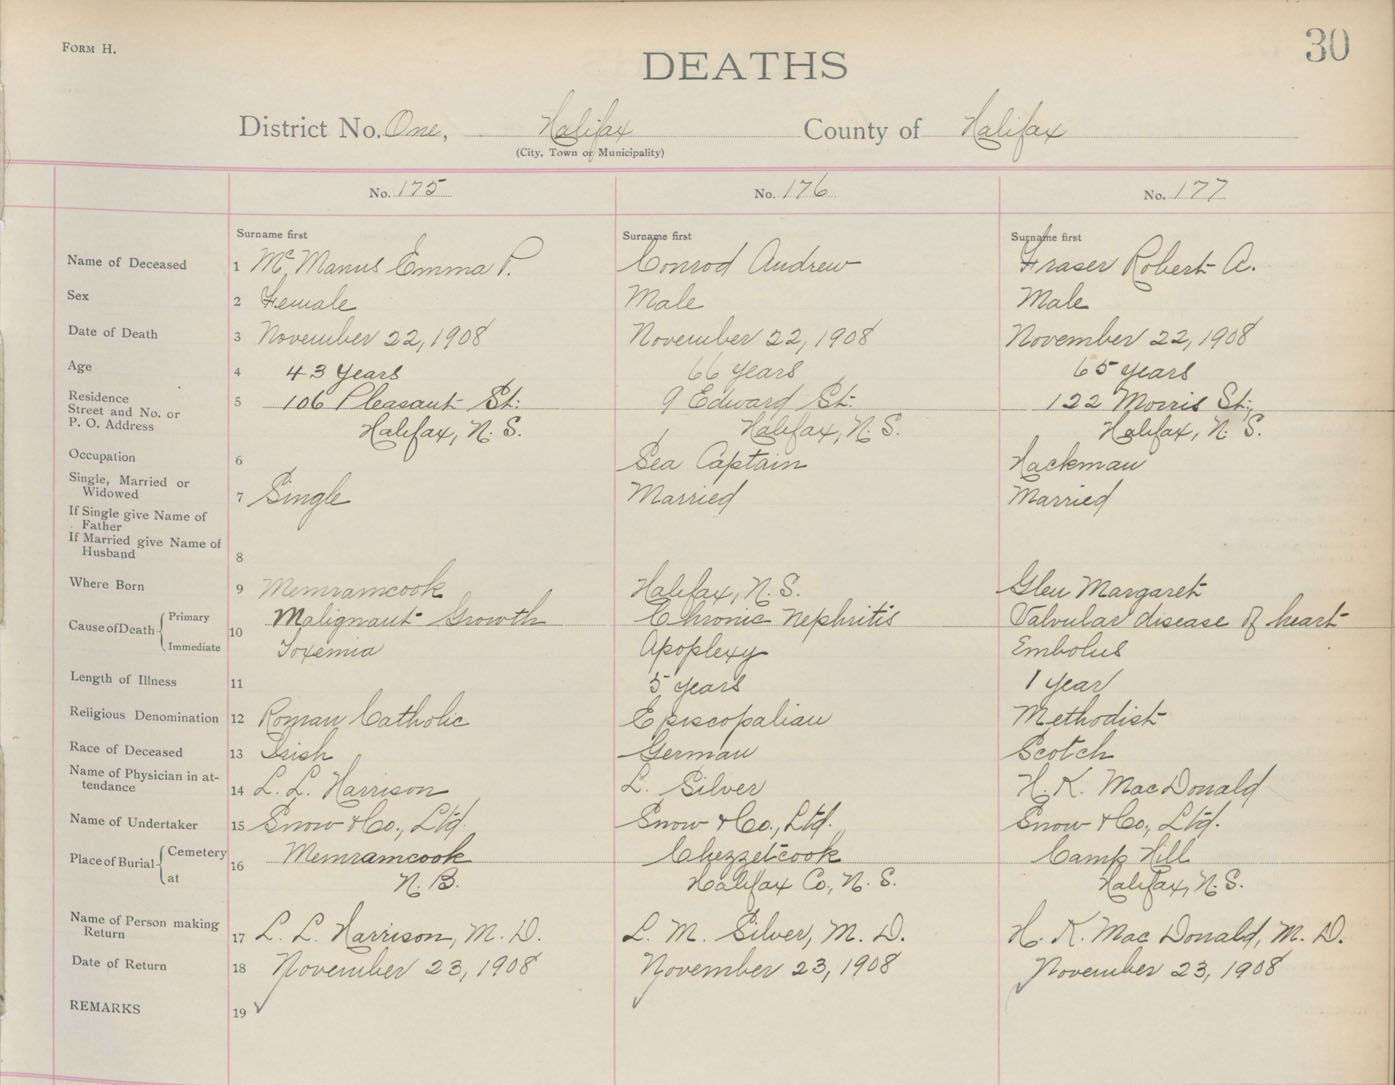 Form H.
30
DEATHS
District No. One, Halifax County of Halifax
(City, Town or Municipality)
No. 175 No. 176 No. 177
Surname first Surname first Surname first
Name of Deceased 1 McManus Emma P. Conrod Andrew Fraser Robert A.
Sex 2 Female Male Male
Date of Death 3 November 22, 1908 November 22, 1908 November 22, 1908
Age 4 43 years 66 years 65 years
Residence
Street and No. or 5 106 Pleasant St. 9 Edward St. 122 Morris St.,
P. O. Address Halifax, N. S. Halifax, N. S. Halifax, N. S.
Occupation 6 Sea Captain Hackman
Single, Married or
Widowed 7 Single Married Married
If Single give Name of
Father
If Married give Name of
Husband 8
Where Born 9 Memramcook Halifax, N. S. Glen Margaret
Cause of Death Primary 10 Malignant Growth Chronic Nephritis Valvular disease of heart
Immediate Toxemia Apoplexy Embolus
Length of Illness 11 5 years 1 year
Religious Denomination 12 Roman Catholic Episcopalian Methodist
Race of Deceased 13 Irish German Scotch
Name of Physician in at-
tendance 14 L. L. Harrison L. Silver H. K. MacDonald
Name of Undertaker 15 Snow & Co., Ltd. Snow & Co., Ltd. Snow & Co., Ltd.
Place of Burial Cemetery 16 Memramcook Chezzetcook Camp Hill
at N. B. Halifax Co., N. S. Halifax, N. S.
Name of Person making
Return 17 L. L. Harrison, M. D. L. M. Silver, M. D. H. K. MacDonald, M. D.
Date of Return 18 November 23, 1908 November 23, 1908 November 23, 1908
REMARKS 19